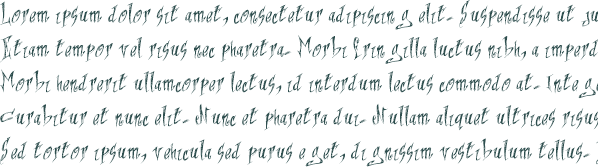 Lorem ipsum dolor sit amet, consectetur adipiscin g elit. Suspendisse ut ju
Etiam tempor vel risus nec pharetra. Morbi frin gilla luctus nibh, a imperd
Morbi hendrerit ullamcorper lectus, id interdum lectus commodo at. Inte g
Curabitur et nunc elit. Nunc et pharetra dui. Nullam aliquet ultrices risus
Sed tortor ipsum, vehicula sed purus e get, di gnissim vestibulum tellus.